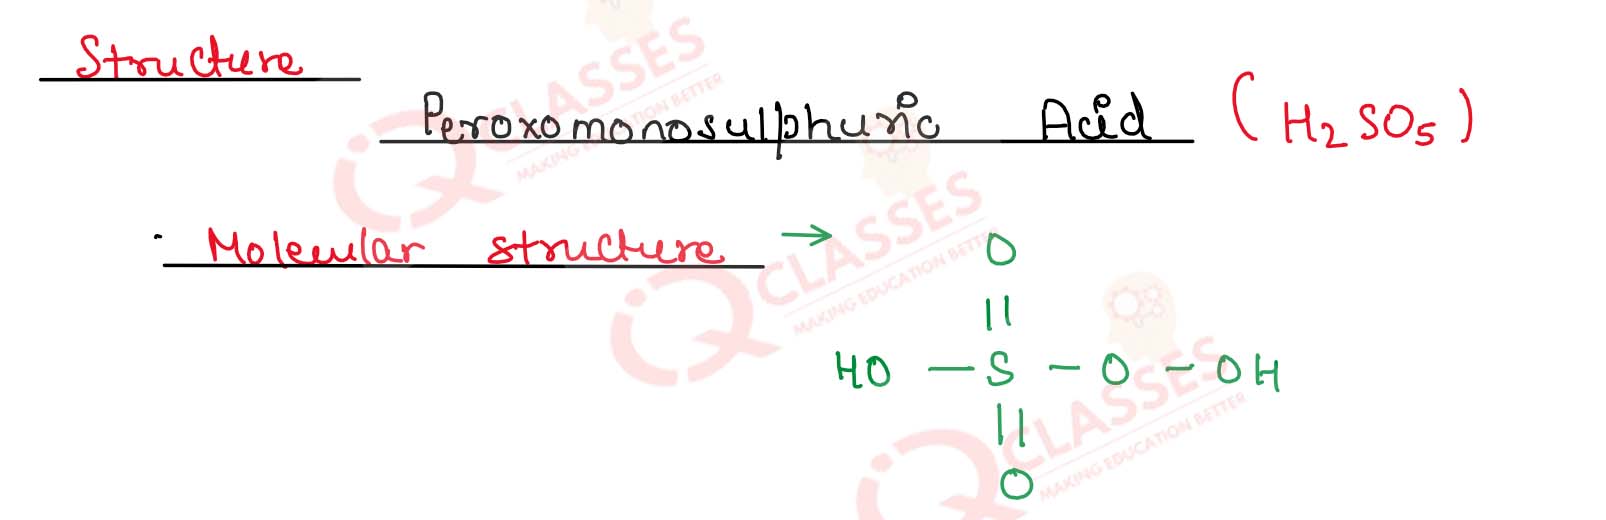 Structure
Peroxomonosulphuric Acid (H₂SO₅)
Molecular structure →
O
||
HO — S — O — OH
||
O
iQ CLASSES
MAKING EDUCATION BETTER
iQ CLASSES
MAKING EDUCATION BETTER
iQ CLASSES
MAKING EDUCATION BETTER